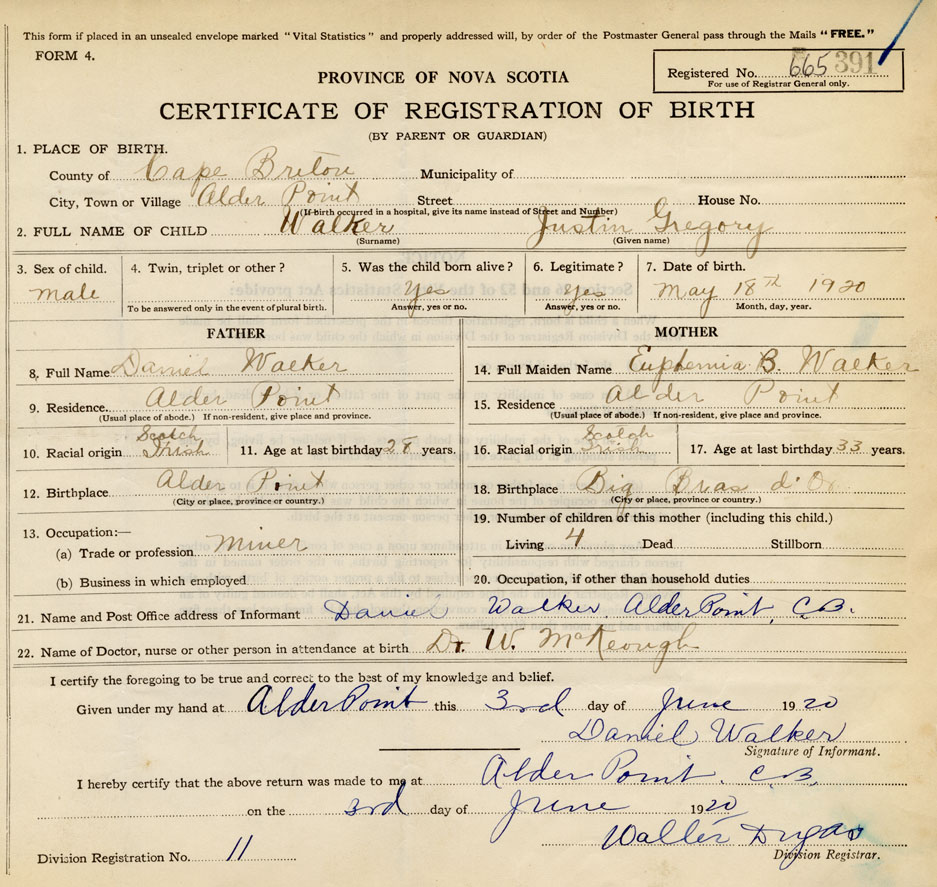 This form if placed in an unsealed envelope marked "Vital Statistics" and properly addressed will, by order of the Postmaster General pass through the Mails "FREE."
FORM 4.
Registered No. 665 391
For use of Registrar General only.
PROVINCE OF NOVA SCOTIA
CERTIFICATE OF REGISTRATION OF BIRTH
(BY PARENT OR GUARDIAN)
1. PLACE OF BIRTH.
County of Cape Breton Municipality of
City, Town or Village Alder Point Street House No.
(If birth occurred in a hospital, give its name instead of Street and Number)
2. FULL NAME OF CHILD Walker Justin Gregory
(Surname) (Given name)
3. Sex of child. 4. Twin, triplet or other? 5. Was the child born alive? 6. Legitimate? 7. Date of birth.
male Yes Yes May 18th 1920
To be answered only in the event of plural birth. Answer, yes or no. Answer, yes or no. Month, day, year.
FATHER
8. Full Name Daniel Walker
9. Residence. Alder Point
(Usual place of abode.) If non-resident, give place and province.
Scotch
10. Racial origin Irish 11. Age at last birthday 28 years.
12. Birthplace Alder Point
(City or place, province or country.)
13. Occupation:—
(a) Trade or profession Miner
(b) Business in which employed
MOTHER
14. Full Maiden Name Euphemia B. Walker
15. Residence Alder Point
(Usual place of abode.) If non-resident, give place and province.
Scotch
16. Racial origin Irish 17. Age at last birthday 33 years.
18. Birthplace Big Bras d'Or
(City or place, province or country.)
19. Number of children of this mother (including this child.)
Living 4 Dead Stillborn
20. Occupation, if other than household duties
21. Name and Post Office address of Informant Daniel Walker Alder Point, C.B.
22. Name of Doctor, nurse or other person in attendance at birth Dr. W. McKeough
I certify the foregoing to be true and correct to the best of my knowledge and belief.
Given under my hand at Alder Point this 3rd day of June 1920
Daniel Walker
Signature of Informant.
I hereby certify that the above return was made to me at Alder Point. C.B.
on the 3rd day of June 1920
Walter Dugas
Division Registrar.
Division Registration No. 11